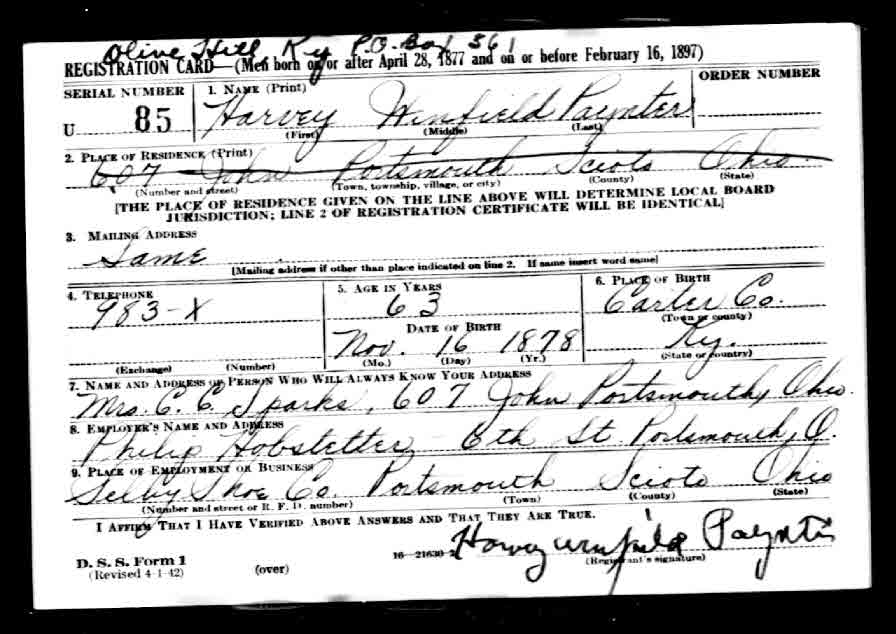 Olive Hill Ky P.O. Box 361
REGISTRATION CARD—(Men born on or after April 28, 1877 and on or before February 16, 1897)
SERIAL NUMBER 1. NAME (Print) ORDER NUMBER
U 85 Harvey Winfield Paynter
(First) (Middle) (Last)
2. PLACE OF RESIDENCE (Print)
607 John Portsmouth Scioto Ohio
(Number and street) (Town, township, village, or city) (County) (State)
[THE PLACE OF RESIDENCE GIVEN ON THE LINE ABOVE WILL DETERMINE LOCAL BOARD
JURISDICTION; LINE 2 OF REGISTRATION CERTIFICATE WILL BE IDENTICAL]
3. MAILING ADDRESS
Same
[Mailing address if other than place indicated on line 2. If same insert word same]
4. TELEPHONE 5. AGE IN YEARS 6. PLACE OF BIRTH
983-X 63 Carter Co.
DATE OF BIRTH (Town or county)
Nov. 16 1878 Ky.
(Exchange) (Number) (Mo.) (Day) (Yr.) (State or country)
7. NAME AND ADDRESS OF PERSON WHO WILL ALWAYS KNOW YOUR ADDRESS
Mrs. C. C. Sparks, 607 John Portsmouth, Ohio.
8. EMPLOYER'S NAME AND ADDRESS
Philip Hobstetter - 6th St Portsmouth, O.
9. PLACE OF EMPLOYMENT OR BUSINESS
Selby Shoe Co. Portsmouth Scioto Ohio
(Number and street or R. F. D. number) (Town) (County) (State)
I AFFIRM THAT I HAVE VERIFIED ABOVE ANSWERS AND THAT THEY ARE TRUE.
D. S. S. Form 1 16—21630-2 Harvey Winfield Paynter
(Revised 4-1-42) (over) (Registrant's signature)